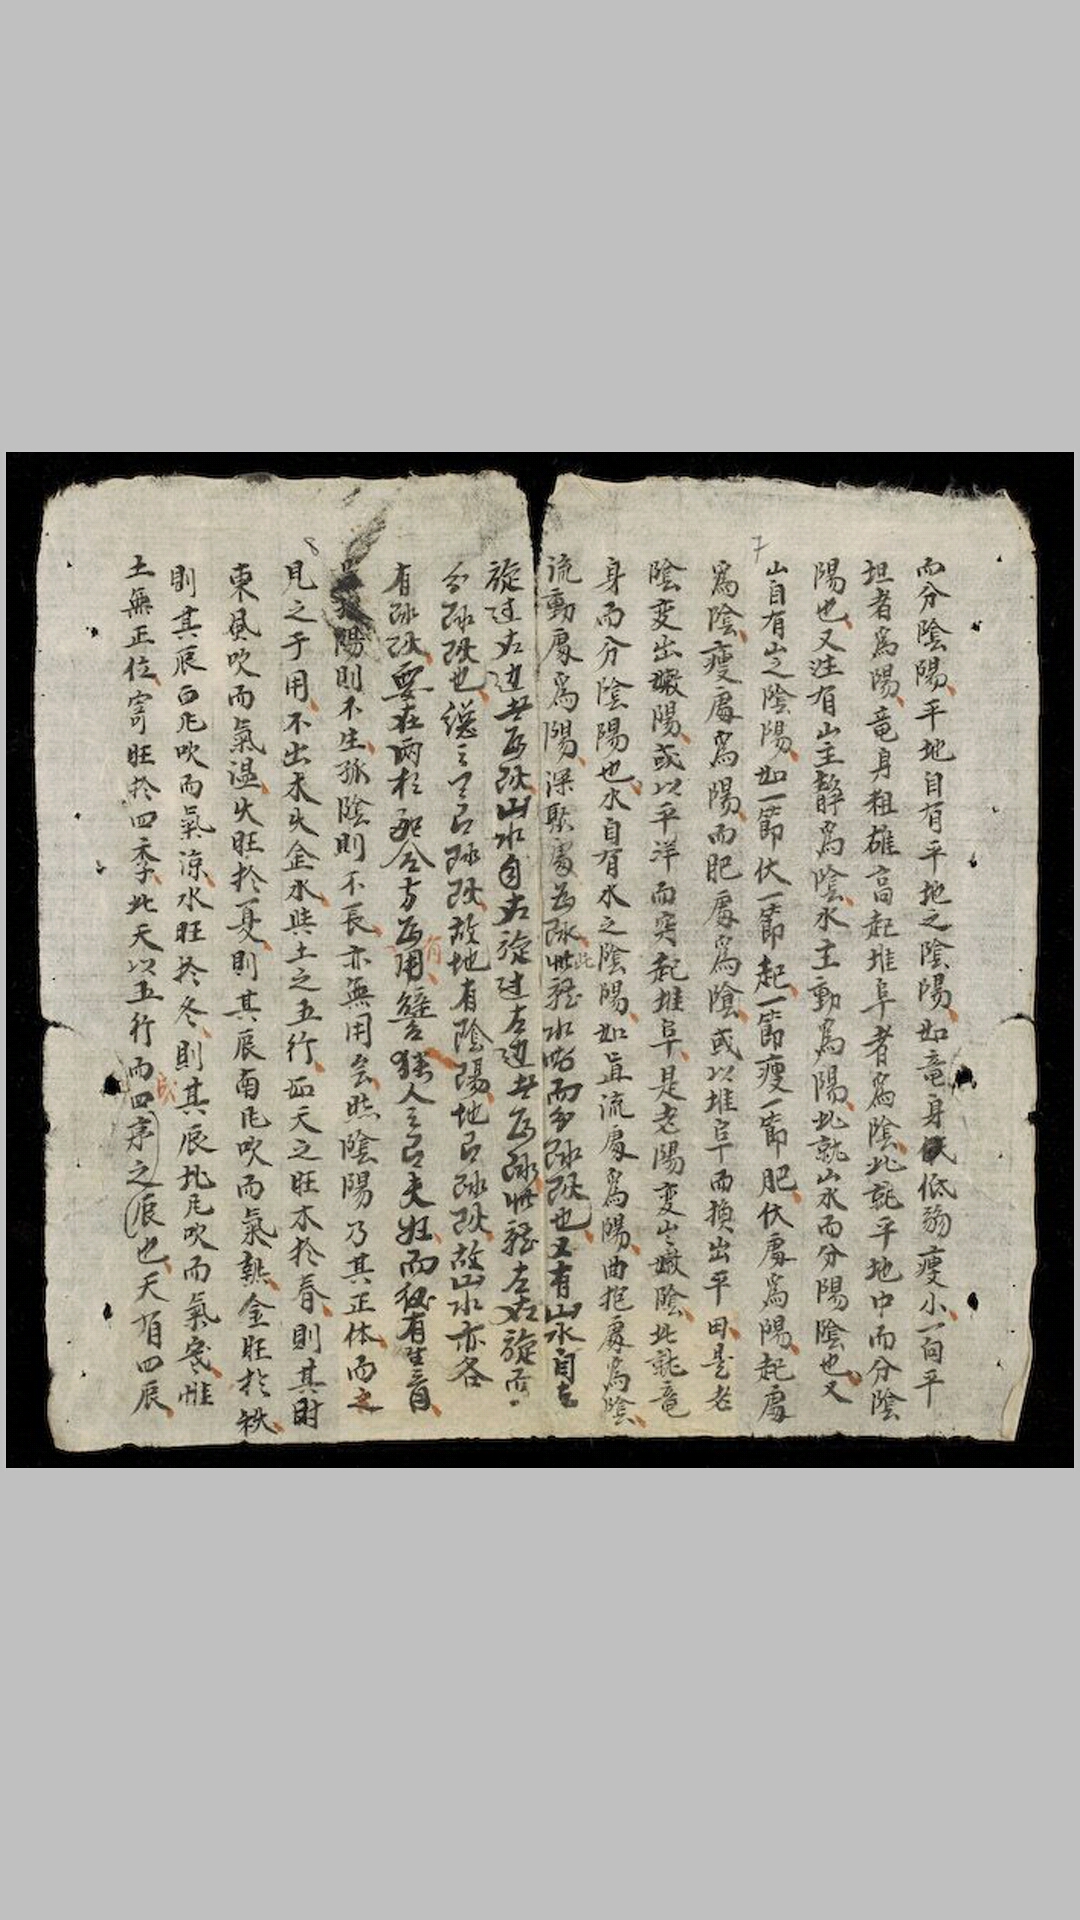 7
而分陰陽平地自有平地之陰陽如竜身低弱瘦小一向平
坦者爲陽竜身粗雄高起堆阜者爲陰此就平地中而分陰
陽也又註有山主静爲陰水主動爲陽此就山水而分陽陰也又
山自有山之陰陽如一節伏一節起一節瘦一節肥伏處爲陽起處
爲陰瘦處爲陽而肥處爲陰或以堆阜而換出平田是老
陰变出嫩陽或以平洋而突起堆阜是老陽变出嫩陰此就竜
身而分陰陽也水自有水之陰陽如直流處爲陽曲抱處爲陰
流動處爲陽深聚處爲此水而分也又有山水自右
旋过左边者为山水自左旋过右边者为左右旋而
分也故地有陰陽地故山水亦各
8
有要在两相配合方有为用譬猶人之有夫妇而後有生育
陽則不生孤陰則不長亦無用矣然陰陽乃其正体而之
見之于用不出木火金水與土之五行而天之旺木於春則其時
東風吹而氣温火旺於夏則其辰南风吹而氣熱金旺於秋
則其辰西风吹而氣凉水旺於冬則其辰北风吹而氣寒惟
土無正位寄旺於四季此天以五行而成四序之辰也天有四辰